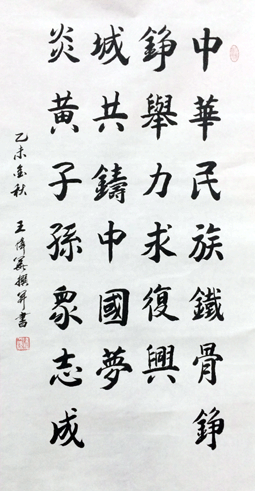 中華民族鐵骨錚
錚舉力求復興
城共鑄中國夢
炎黃子孫眾志成
乙未金秋 王偉義撰並書